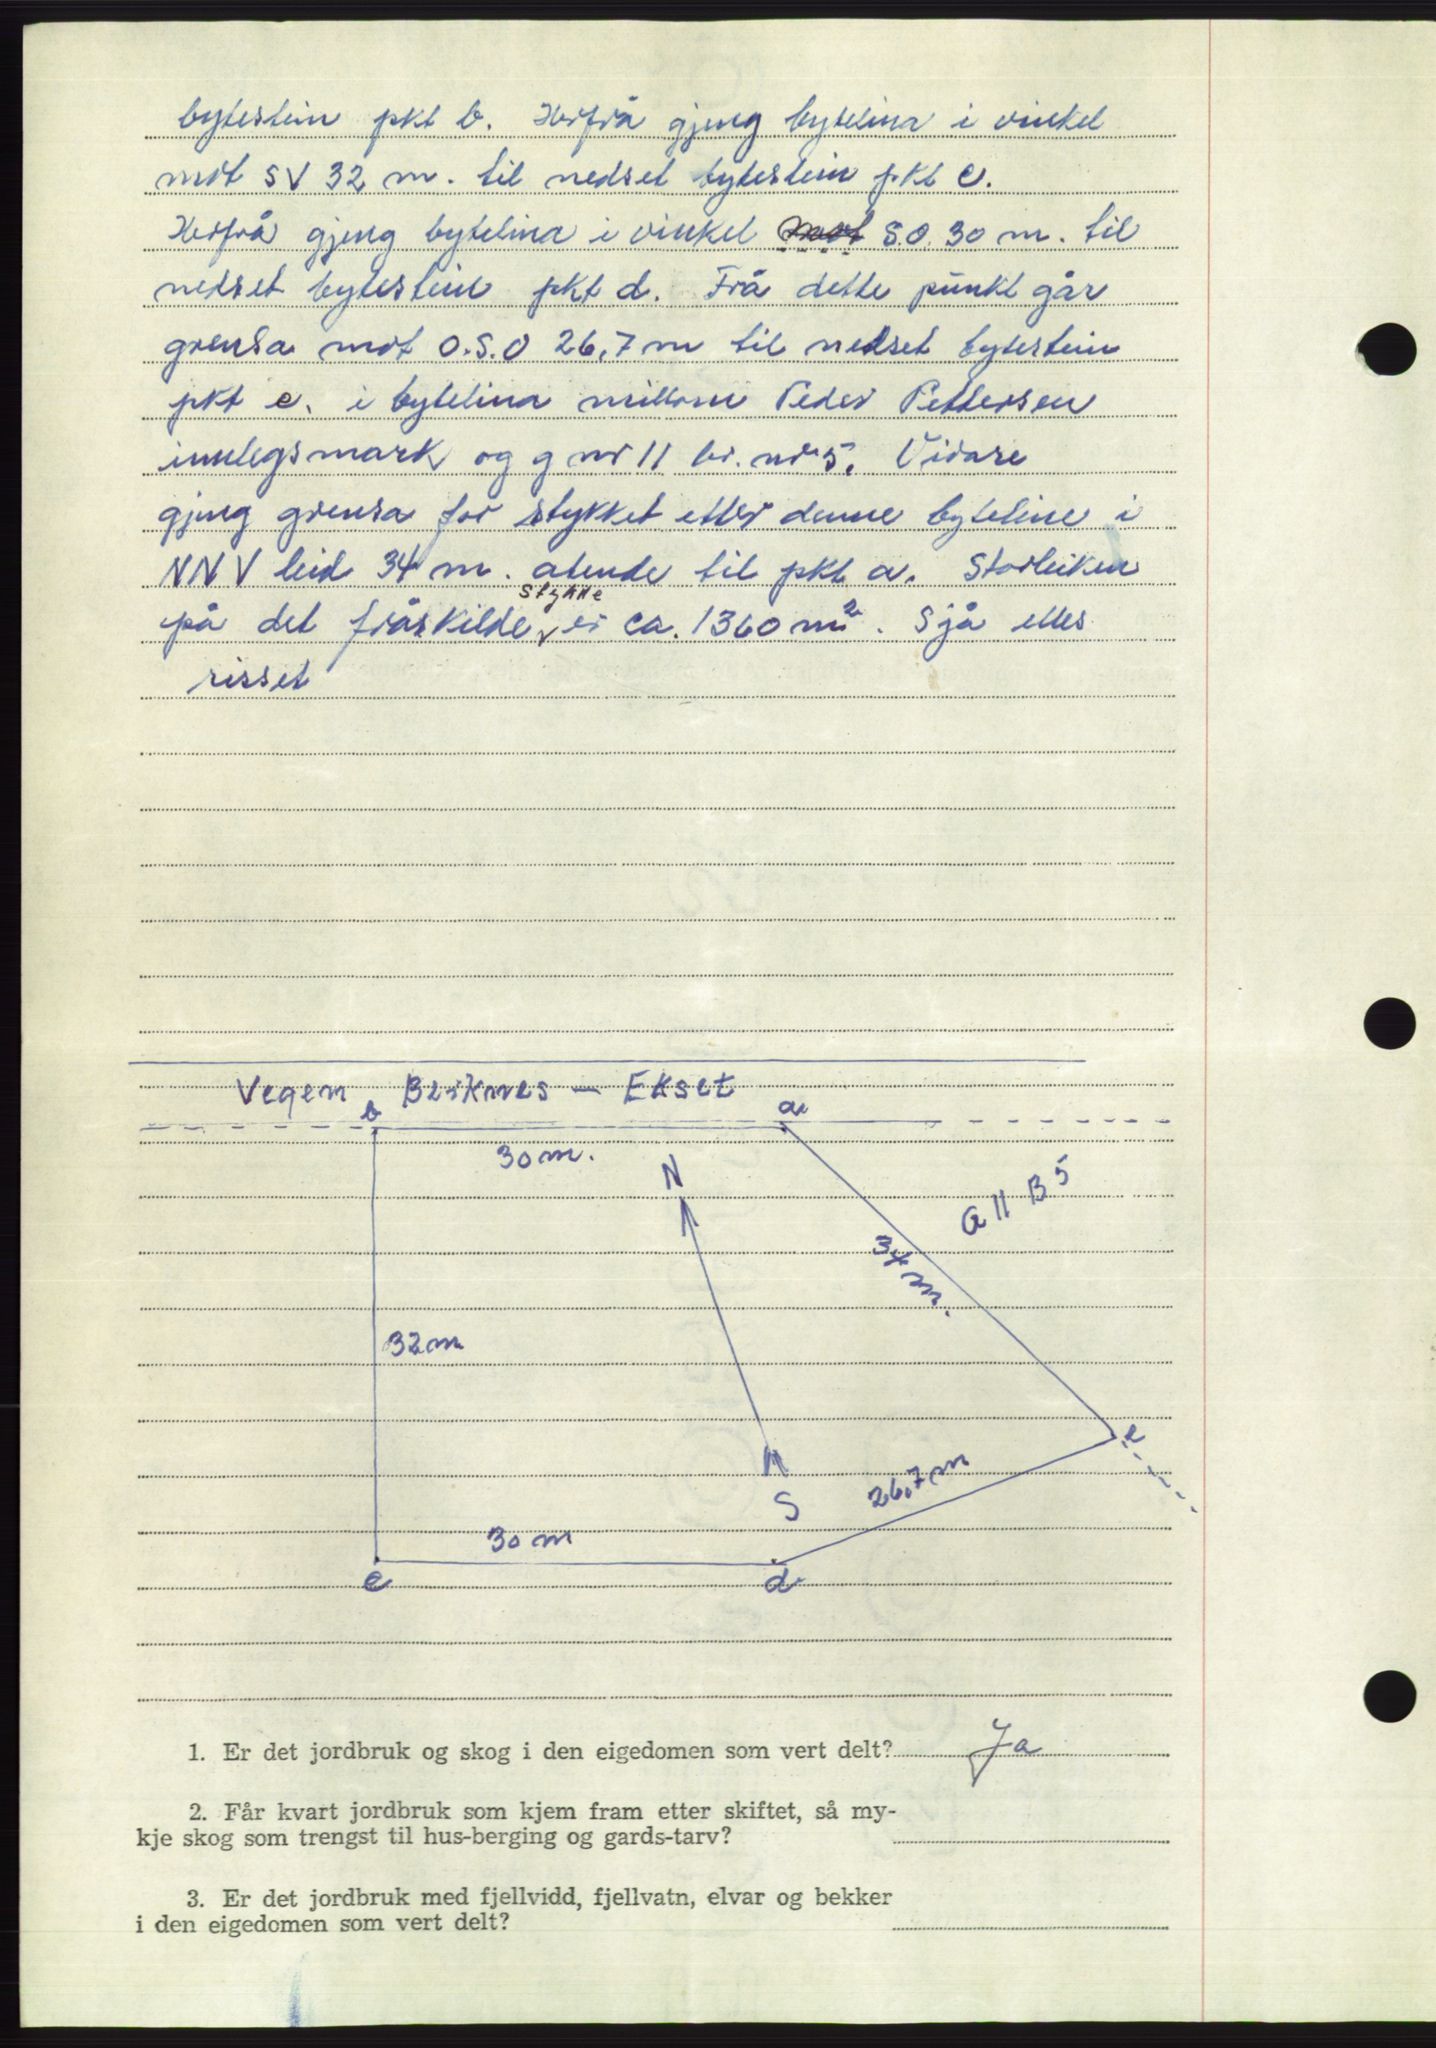 bytestein pkt b. Herfrå gjeng bytelina i vinkel
mot SV 32 m. til nedset bytestein pkt c.
Herfrå gjeng bytelina i vinkel mot S.O. 30 m. til
nedset bytestein pkt d. Frå dette punkt går
grensa mot O.S.O 26,7 m til nedset bytestein
pkt e. i bytelina millom Peder Pettersen
innlegsmark og g nr 11 br. nr 5. Vidare
gjeng grensa for stykket etter denne byteline i
NNV leid 34 m. atende til pkt a. Storleiken
på det fråskilde stykke er ca. 1360 m². Sjå elles
risset
Vegen Berknes — Ekset
b
a
30 m.
N
G 11 B 5
34 m.
32 m
e
26,7 m
S
30 m
c
d
1. Er det jordbruk og skog i den eigedomen som vert delt? Ja
2. Får kvart jordbruk som kjem fram etter skiftet, så my-
kje skog som trengst til hus-berging og gards-tarv?
3. Er det jordbruk med fjellvidd, fjellvatn, elvar og bekker
i den eigedomen som vert delt?